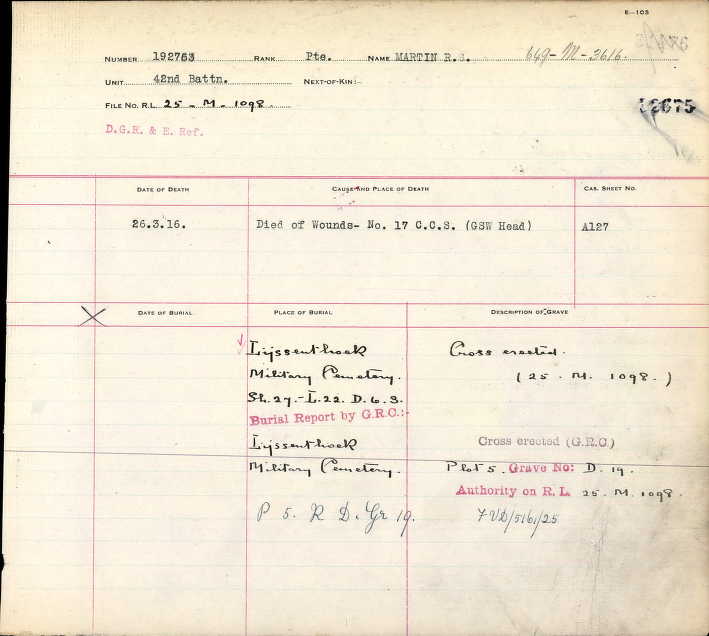 E—103
NUMBER 192753 RANK Pte. NAME MARTIN R.S. 649-M-3616.
UNIT 42nd Battn. NEXT-OF-KIN:-
FILE NO. R.L. 25 - M - 1098
D.G.R. & E. Ref.
DATE OF DEATH CAUSE AND PLACE OF DEATH CAS. SHEET NO.
26.3.16. Died of Wounds- No. 17 C.C.S. (GSW Head) A127
DATE OF BURIAL PLACE OF BURIAL DESCRIPTION OF GRAVE
Lijssenthoek Cross erected.
Military Cemetery. (25. M. 1098.)
Sh.27.-L.22. D. 6. 3.
Burial Report by G.R.C.:-
Lijssenthoek Cross erected (G.R.C.)
Military Cemetery. Plot 5. Grave No: D. 19.
Authority on R.L. 25. M. 1098.
P 5. R D. Gr 19. 7 VD/5161/25